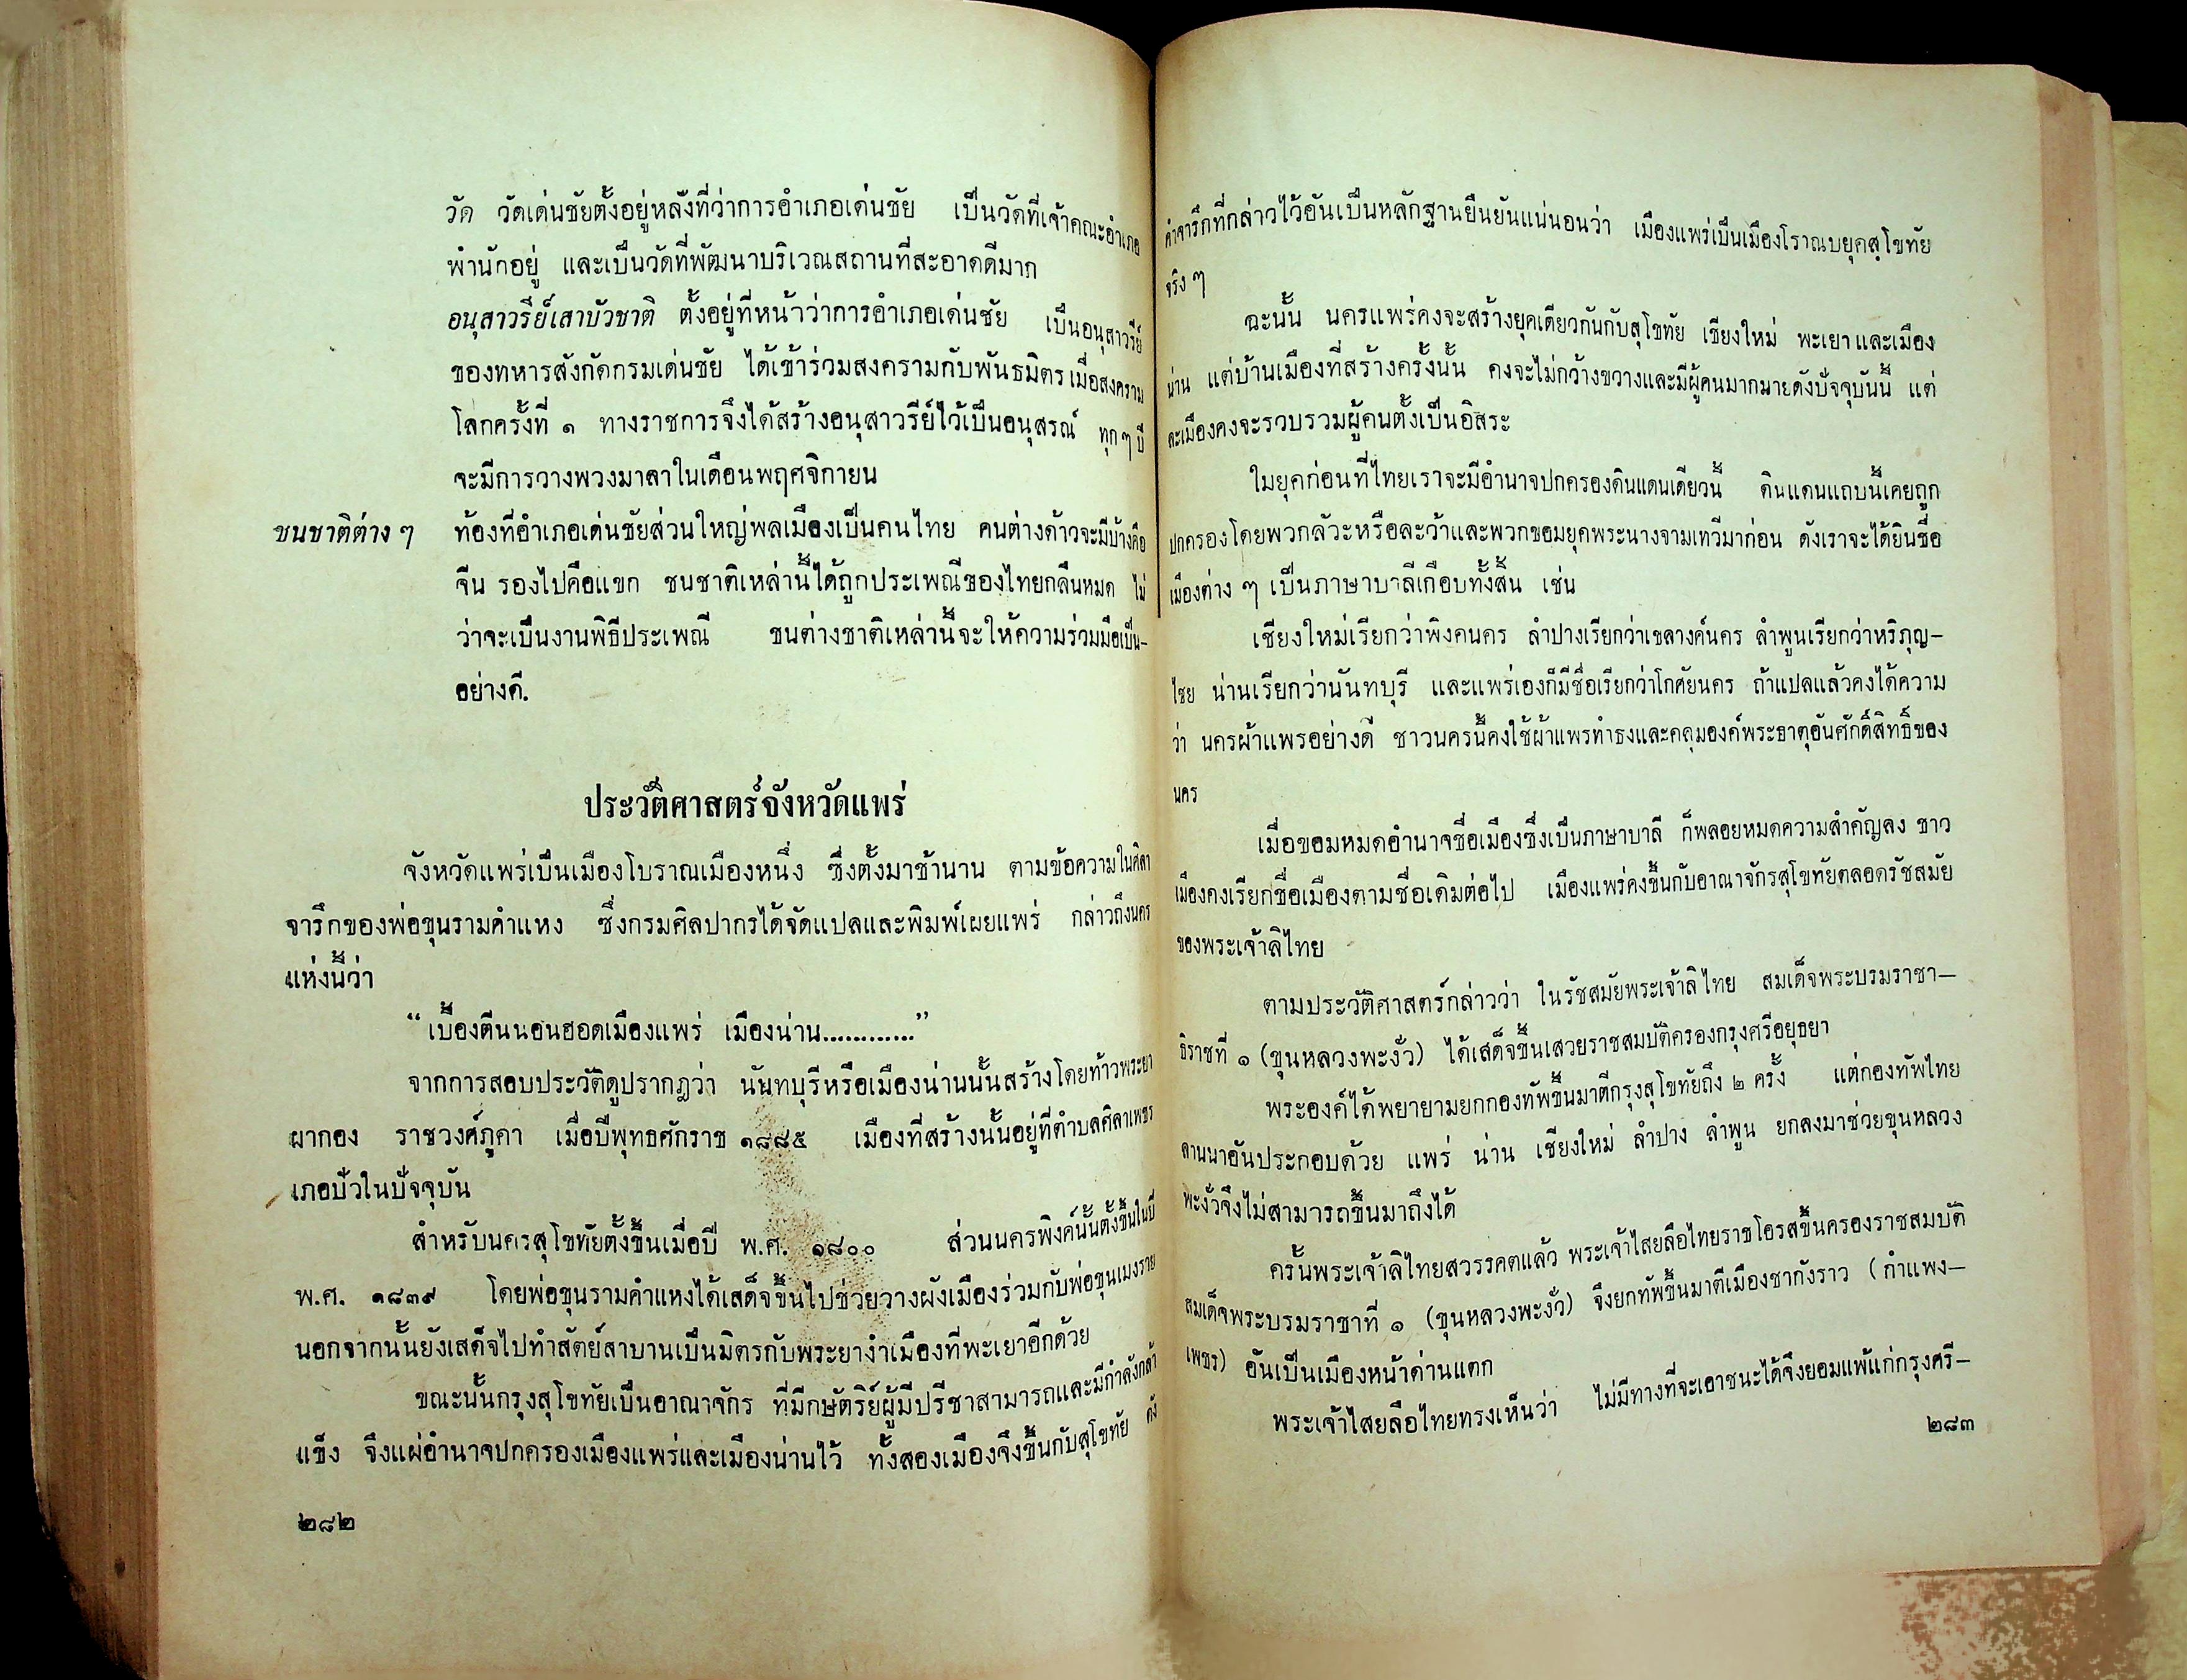 วัด วัดเด่นชัยตั้งอยู่หลังที่ว่าการอำเภอเด่นชัย เป็นวัดที่เจ้าคณะอำเภอ
พำนักอยู่ และเป็นวัดที่พัฒนาบริเวณสถานที่สะอาดดีมาก
อนุสาวรีย์เสาบัวชาติ ตั้งอยู่ที่หน้าว่าการอำเภอเด่นชัย เป็นอนุสาวรีย์
ของทหารสังกัดกรมเด่นชัย ได้เข้าร่วมสงครามกับพันธมิตร เมื่อสงคราม
โลกครั้งที่ ๑ ทางราชการจึงได้สร้างอนุสาวรีย์ไว้เป็นอนุสรณ์ ทุก ๆ ปี
จะมีการวางพวงมาลาในเดือนพฤศจิกายน
ชนชาติต่าง ๆ ท้องที่อำเภอเด่นชัยส่วนใหญ่พลเมืองเป็นคนไทย คนต่างด้าวจะมีบ้างคือ
จีน รองไปคือแขก ชนชาติเหล่านี้ได้ถูกประเพณีของไทยกลืนหมด ไม่
ว่าจะเป็นงานพิธีประเพณี ชนต่างชาติเหล่านี้จะให้ความร่วมมือเป็น-
อย่างดี.
ประวัติศาสตร์จังหวัดแพร่
จังหวัดแพร่เป็นเมืองโบราณเมืองหนึ่ง ซึ่งตั้งมาช้านาน ตามข้อความในศิลา
จารึกของพ่อขุนรามคำแหง ซึ่งกรมศิลปากรได้จัดแปลและพิมพ์เผยแพร่ กล่าวถึงนคร
แห่งนี้ว่า
“เบื้องตีนนอนฮอดเมืองแพร่ เมืองน่าน............”
จากการสอบประวัติดูปรากฎว่า นันทบุรีหรือเมืองน่านนั้นสร้างโดยท้าวพระยา
ผากอง ราชวงศ์ภูคา เมื่อปีพุทธศักราช ๑๘๘๕ เมืองที่สร้างนั้นอยู่ที่ตำบลศิลาเพชร
เภอปัวในปัจจุบัน
สำหรับนครสุโขทัยตั้งขึ้นเมื่อปี พ.ศ. ๑๘๐๐ ส่วนนครพิงค์นั้นตั้งขึ้นในปี
พ.ศ. ๑๘๓๙ โดยพ่อขุนรามคำแหงได้เสด็จขึ้นไปช่วยวางผังเมืองร่วมกับพ่อขุนเมงราย
นอกจากนั้นยังเสด็จไปทำสัตย์สาบานเป็นมิตรกับพระยางำเมืองที่พะเยาอีกด้วย
ขณะนั้นกรุงสุโขทัยเป็นอาณาจักร ที่มีกษัตริย์ผู้มีปรีชาสามารถและมีกำลังกล้า
แข็ง จึงแผ่อำนาจปกครองเมืองแพร่และเมืองน่านไว้ ทั้งสองเมืองจึงขึ้นกับสุโขทัย ดัง
๒๘๒
คำจารึกที่กล่าวไว้อันเป็นหลักฐานยืนยันแน่นอนว่า เมืองแพร่เป็นเมืองโราณบยุคสุโขทัย
จริง ๆ
ฉะนั้น นครแพร่คงจะสร้างยุคเดียวกันกับสุโขทัย เชียงใหม่ พะเยา และเมือง
น่าน แต่บ้านเมืองที่สร้างครั้งนั้น คงจะไม่กว้างขวางและมีผู้คนมากมายดังปัจจุบันนี้ แต่
ละเมืองคงจะรวบรวมผู้คนตั้งเป็นอิสระ
ในยุคก่อนที่ไทยเราจะมีอำนาจปกครองดินแดนเดียวนี้ ดินแดนแถบนี้เคยถูก
ปกครองโดยพวกลัวะหรือละว้าและพวกขอมยุคพระนางจามเทวีมาก่อน ดังเราจะได้ยินชื่อ
เมืองต่าง ๆ เป็นภาษาบาลีเกือบทั้งสิ้น เช่น
เชียงใหม่เรียกว่าพิงคนคร ลำปางเรียกว่าเขลางค์นคร ลำพูนเรียกว่าหริภุญ-
ไชย น่านเรียกว่านันทบุรี และแพร่เองก็มีชื่อเรียกว่าโกศัยนคร ถ้าแปลแล้วคงได้ความ
ว่า นครผ้าแพรอย่างดี ชาวนครนี้คงใช้ผ้าแพรทำธงและคลุมองค์พระธาตุอันศักดิ์สิทธิ์ของ
นคร
เมื่อขอมหมดอำนาจชื่อเมืองซึ่งเป็นภาษาบาลี ก็พลอยหมดความสำคัญลง ชาว
เมืองคงเรียกชื่อเมืองตามชื่อเดิมต่อไป เมืองแพร่คงขึ้นกับอาณาจักรสุโขทัยตลอดรัชสมัย
ของพระเจ้าลิไทย
ตามประวัติศาสตร์กล่าวว่า ในรัชสมัยพระเจ้าลิไทย สมเด็จพระบรมราชา-
ธิราชที่ ๑ (ขุนหลวงพะงั่ว) ได้เสด็จขึ้นเสวยราชสมบัติครองกรุงศรีอยุธยา
พระองค์ได้พยายามยกกองทัพขึ้นมาตีกรุงสุโขทัยถึง ๒ ครั้ง แต่กองทัพไทย
ลานนาอันประกอบด้วย แพร่ น่าน เชียงใหม่ ลำปาง ลำพูน ยกลงมาช่วยขุนหลวง
พะงั่วจึงไม่สามารถขึ้นมาถึงได้
ครั้นพระเจ้าลิไทยสวรรคตแล้ว พระเจ้าไสยลือไทยราชโอรสขึ้นครองราชสมบัติ
สมเด็จพระบรมราชาที่ ๑ (ขุนหลวงพะงั่ว) จึงยกทัพขึ้นมาตีเมืองชากังราว (กำแพง-
เพชร) อันเป็นเมืองหน้าด่านแตก
พระเจ้าไสยลือไทยทรงเห็นว่า ไม่มีทางที่จะเอาชนะได้จึงยอมแพ้แก่กรุงศรี-
๒๘๓